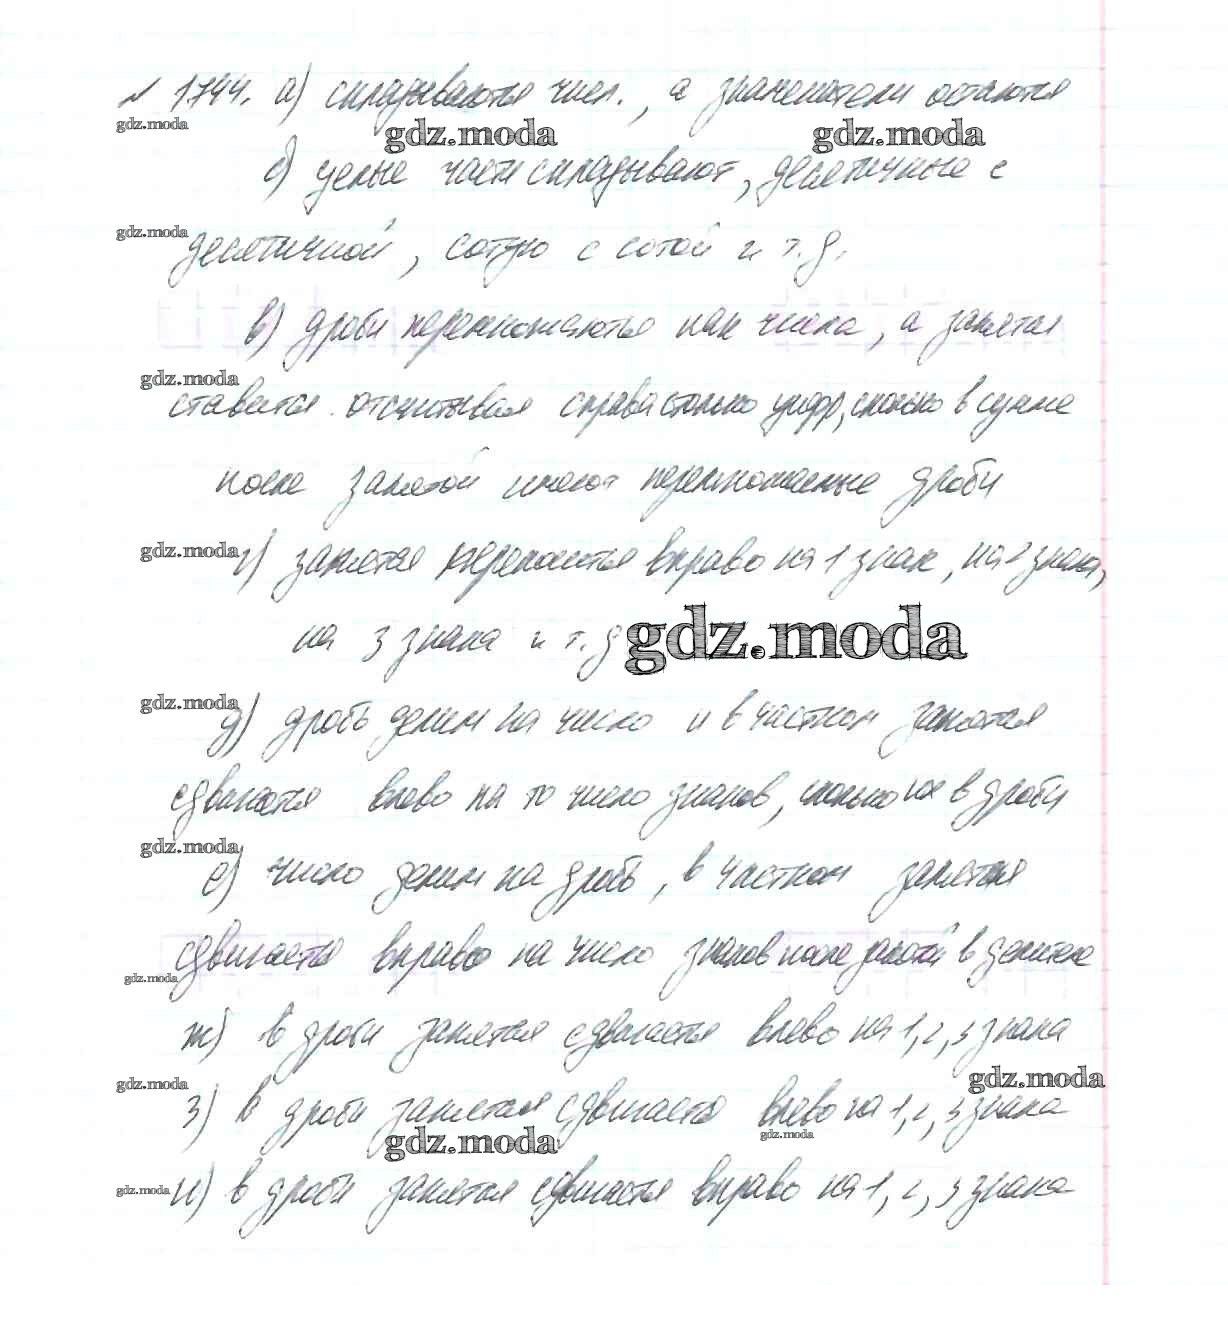 № 1744. а) складываются числ., а знаменатели остаются
gdz.moda gdz.moda gdz.moda
б) целые части складывают, десятичные с
gdz.moda
десятичной, сотую с сотой и т.д.
в) дроби перемножаются как числа, а запятая
gdz.moda
ставится отсчитывая справа столько цифр, сколько в сумме
после запятой имеют перемноженные дроби
gdz.moda г) запятая переносится вправо на 1 знак, на 2 знака,
на 3 знака и т.д gdz.moda
gdz.moda
д) дробь делим на число и в частном запятая
сдвигается влево на то число знаков, сколько их в дроби
gdz.moda
е) число делим на дробь, в частном запятая
сдвигается вправо на число знаков после запятой в делителе
gdz.moda
ж) в дроби запятая сдвигается влево на 1, 2, 3 знака
gdz.moda gdz.moda
з) в дроби запятая сдвигается влево на 1, 2, 3 знака
gdz.moda gdz.moda
gdz.moda и) в дроби запятая сдвигается вправо на 1, 2, 3 знака